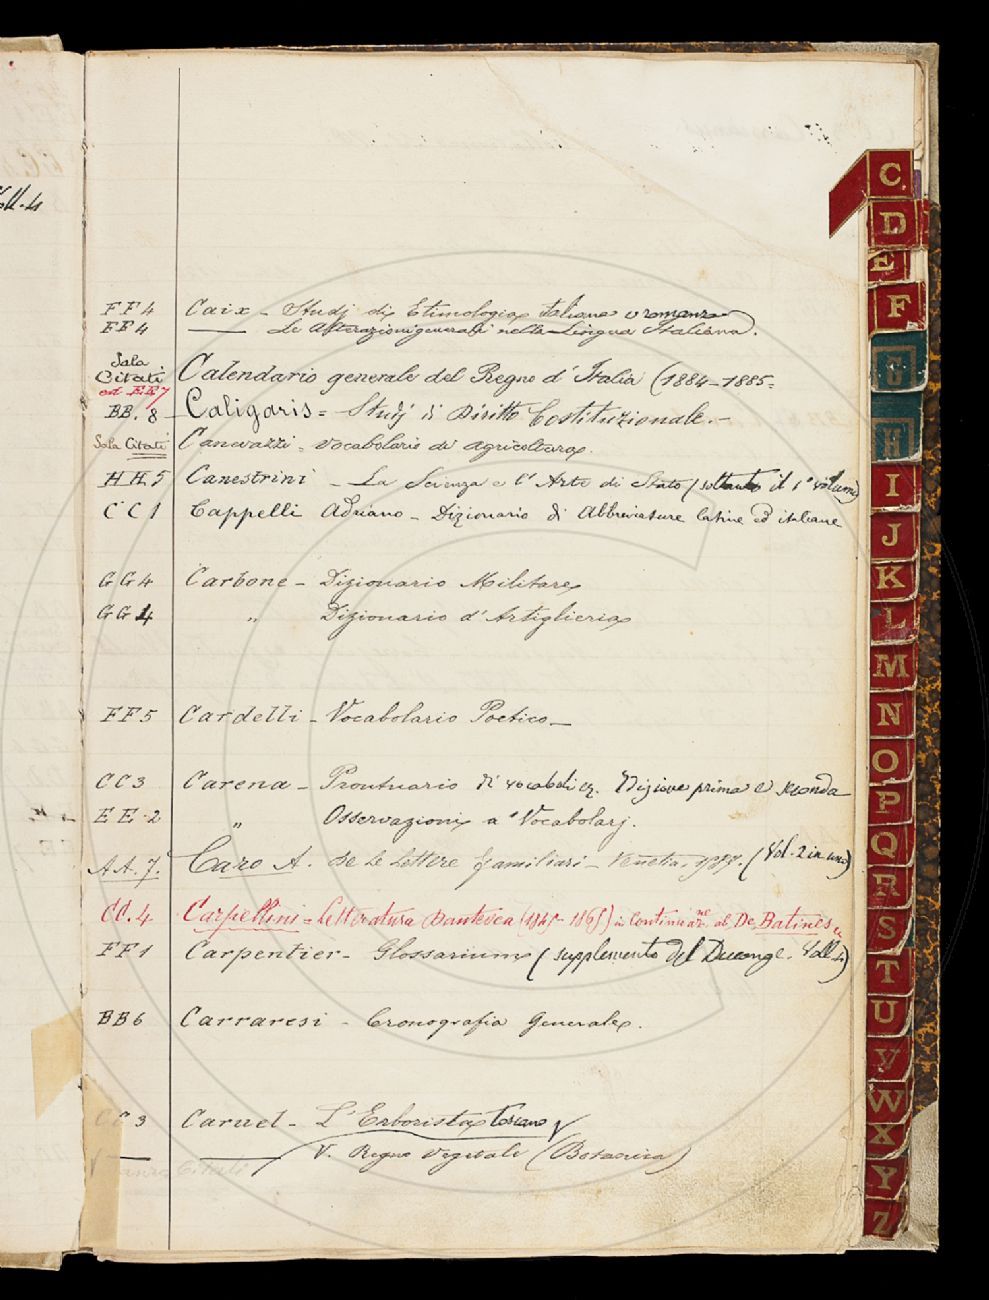 Vol.4
FF4 Caix - Studj di Etimologia Italiana e romanza
FF4 — Le Alterazioni generali nella Lingua Italiana.
Sala Citati Calendario generale del Regno d'Italia (1884-1885=
ed EE7
BB. 8 Caligaris = Studj di Diritto Costituzionale. -
Sala Citati Canevazzi = Vocabolario di agricoltura.
HH5 Canestrini - La Scienza e l'Arte di Stato (soltanto il 1° volume)
CC1 Cappelli Adriano - Dizionario di Abbreviature latine ed italiane
GG4 Carbone - Dizionario Militare
GG4 „ Dizionario d'Artiglieria
FF5 Cardelli - Vocabolario Poetico -
CC3 Carena - Prontuario di vocaboli prima e seconda
EE-2 „ Osservazioni a' Vocabolarj.
AA.7. Caro A. De le Lettere famigliari - Venetia (Vol. 2 in uno)
CC.4 Carpellini = Letteratura Dantesca (1845-1865) in continuazne al De Batines
FF1 Carpentier - Glossarium (supplemento del Ducange. Voll. 4)
BB6 Carraresi - Cronografia Generale.
CC3 Caruel - L'Erborista Toscano
V. Regno Vegetale (Botanica)
Citati
C
D
E
F
G
H
I
J
K
L
M
N
O
P
Q
R
S
T
U
V
W
X
Y
Z